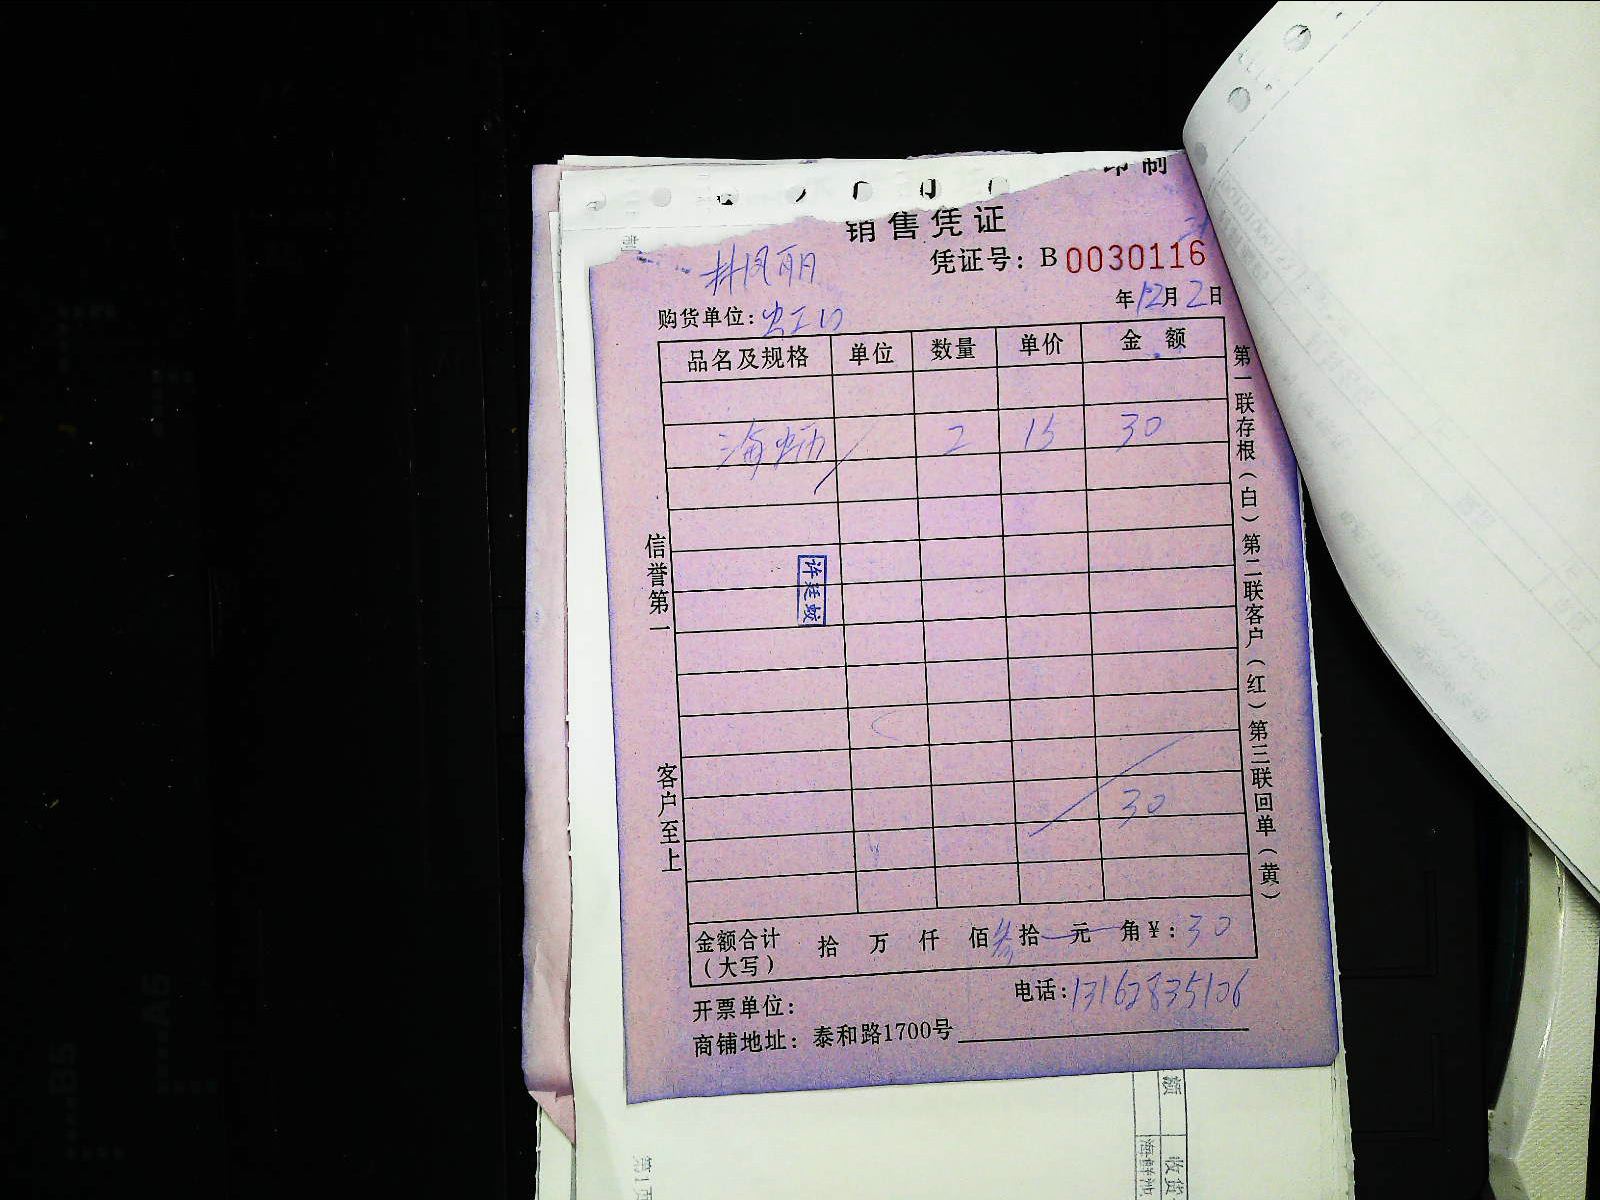 印制
销售凭证
凭证号：B 0030116
年12月2日
购货单位：虹口
品名及规格 单位 数量 单价 金 额
海蛎 2 15 30
30
金额合计（大写） 拾 万 仟 佰 叁拾 元 角 ￥：30
电话：13162835106
开票单位：
商铺地址：泰和路1700号
信誉第一
客户至上
第一联存根（白）第二联客户（红）第三联回单（黄）